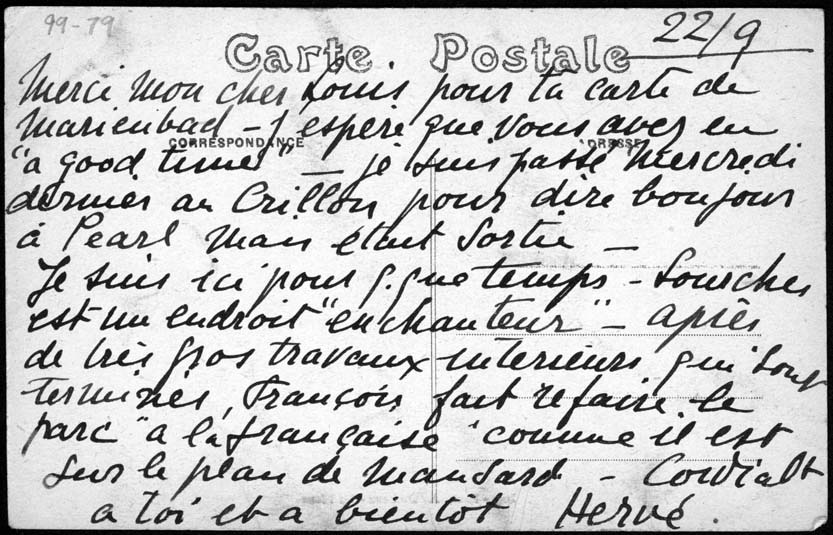 99-79
22/9
Carte Postale
CORRESPONDANCE
Merci mon cher Louis pour ta carte de
Marienbad - J'espère que vous avez eu
"a good time" - je suis passé mercredi
dernier au Crillon pour dire bonjour
à Pearl mais était sortie -
Je suis ici pour q.que temps - Sourches
est un endroit "enchanteur" - après
de très gros travaux interieurs qui sont
terminés, François fait refaire le
parc "à la française" comme il est
sur le plan de Mansard - Cordialt
a toi et a bientôt Hervé.